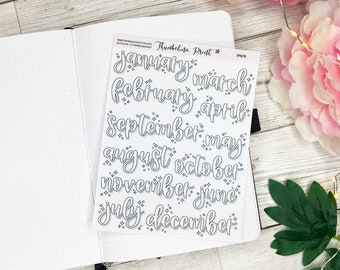 Thumbelina Print
january march
february april
september may
august october
november june
july december